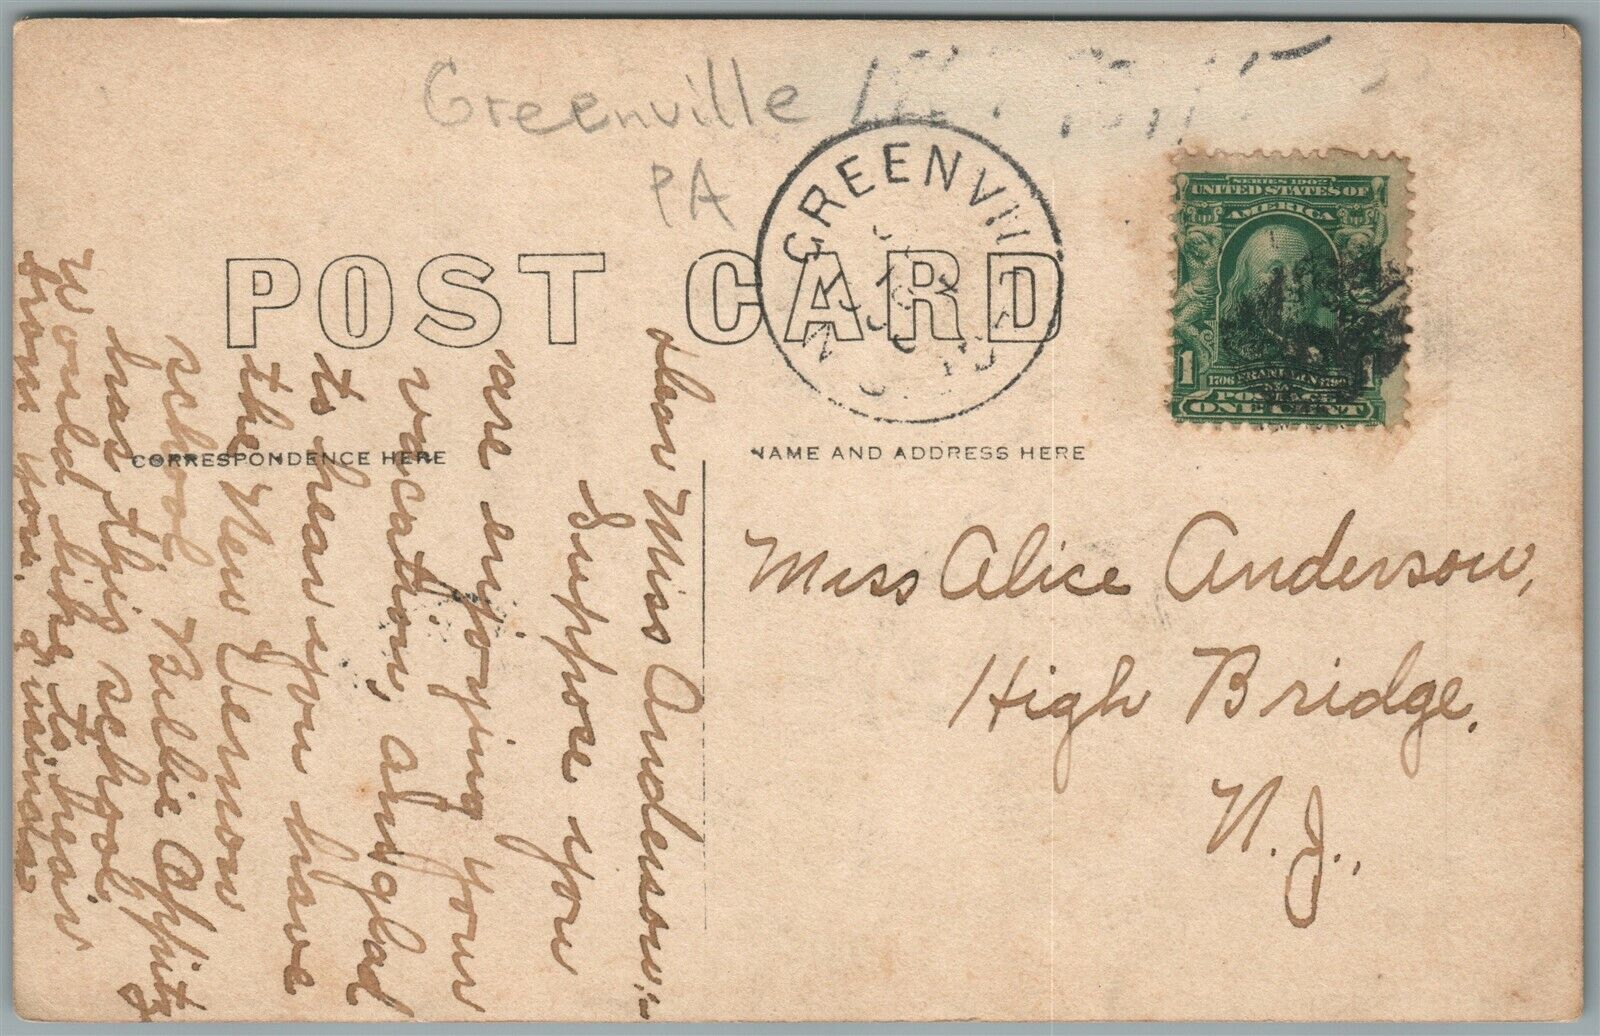 Greenville
PA
GREENVIL
SERIES 1902
UNITED STATES OF
AMERICA
1706 FRANKLIN 1790
1
POSTAGE
ONE CENT
POST CARD
CORRESPONDENCE HERE
NAME AND ADDRESS HERE
Dear Miss Anderson:-
Suppose you
are enjoying your
vacation, am glad
to hear you have
the New Vernon
school. Billie
has this school,
Would like to hear
from you.
Miss Alice Anderson,
High Bridge,
N.J.,